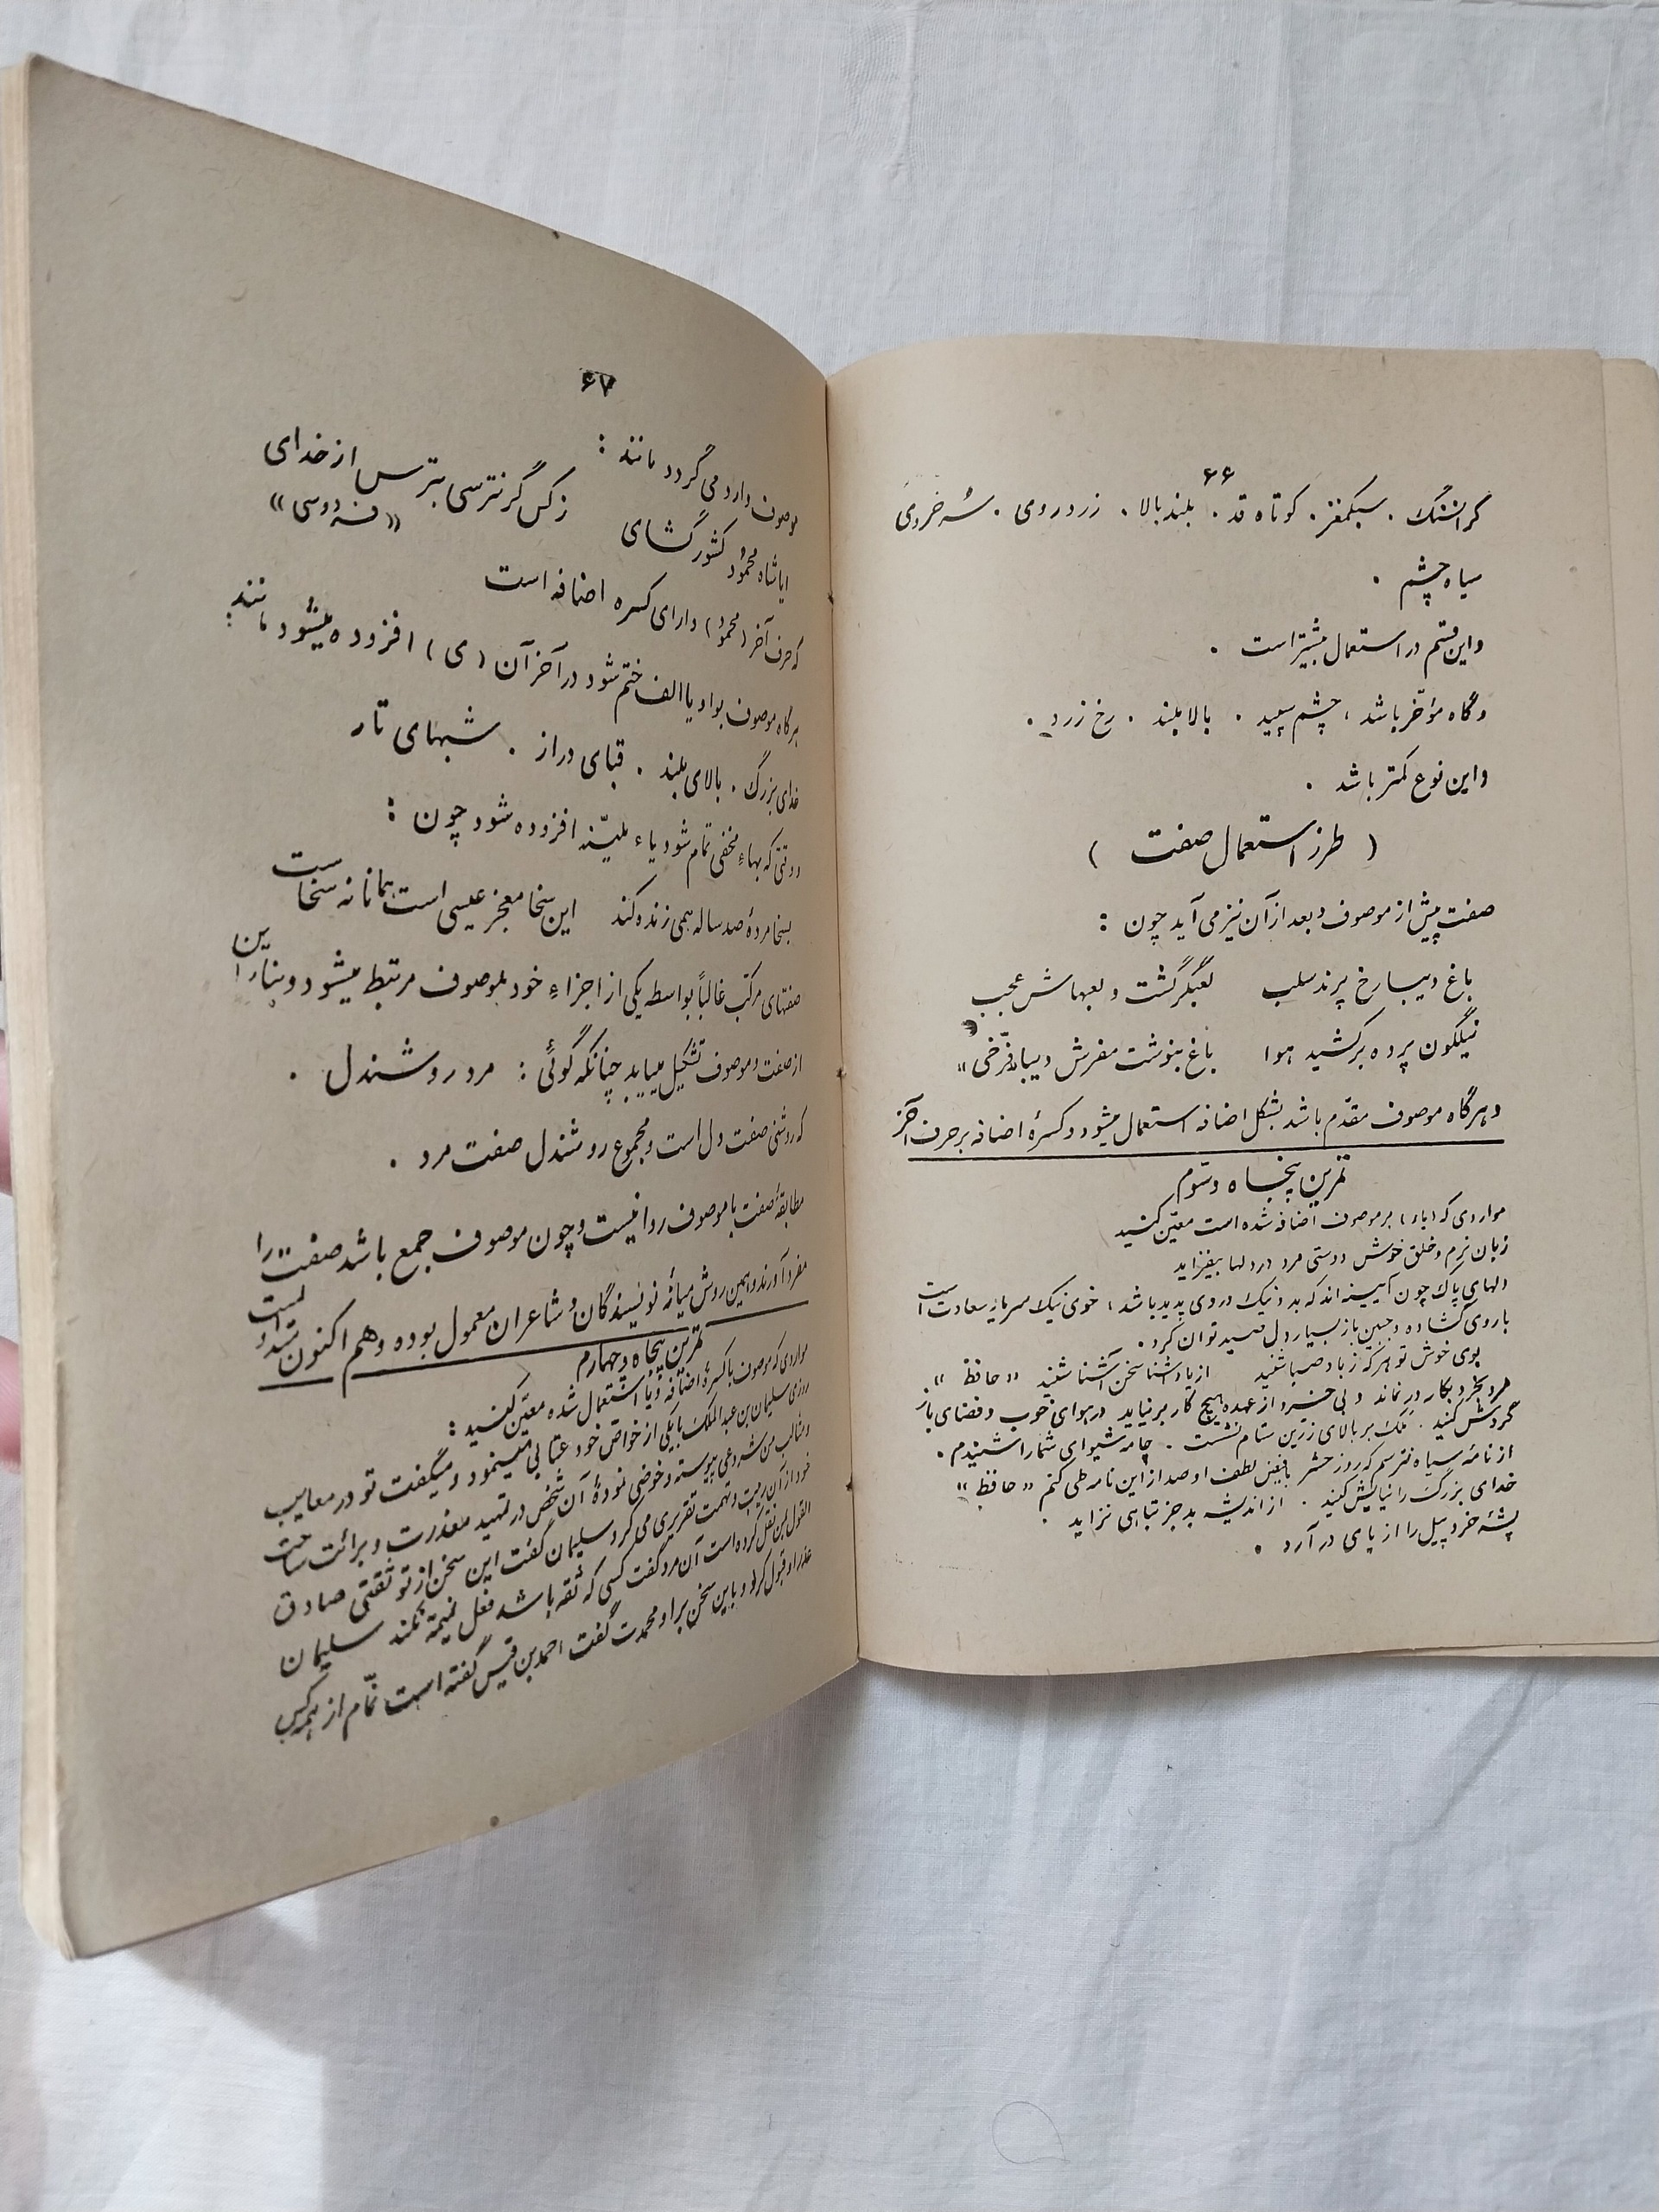 ۶۶
گرانسنگ . سبکمغز . کوتاه قد . بلند بالا . زرد روی . سرخ روی
سیاه چشم .
واین قسم در استعمال بیشتر است .
و گاه مؤخر باشد ، چشم سپید . بالا بلند . رخ زرد .
واین نوع کمتر باشد .
( طرز استعمال صفت )
صفت پیش از موصوف و بعد از آن نیز می آید چون :
باغ دیبا رخ پرند سلب لعبگر گشت و لعبهاش عجب
نیلگون پرده برکشید هوا باغ بنوشت مفرش دیبا «فرّخی»
و هرگاه موصوف مقدّم باشد بشکل اضافه استعمال میشود و کسرهٔ اضافه بر حرف آخر
تمرین پنجاه و سوّم
مواردی که (یاء) بر موصوف اضافه شده است معیّن کنید
زبان نرم و خلق خوش دوستی مرد در دلها بیفزاید
دلهای پاک چون آیینه اند که بد و نیک در وی پدید باشد ، خوی نیک سرمایه سعادت است
با روی گشاده و جبین باز بسیار دل صید توان کرد .
بوی خوش تو هر که ز باد صبا شنید از یار آشنا سخن آشنا شنید «حافظ»
مرد بخرد بکار در نماند و بی خرد از عهده هیچ کار بر نیاید در هوای خوب و فضای باز
گردش کنید . ملک بر بالای زرین ستام نشست . چامه شیوای شما را شنیدم .
از نامه سیاه نترسم که روز حشر با فیض لطف او صد از این نامه طی کنم «حافظ»
خدای بزرگ را نیایش کنید . از اندیشه بد جز تباهی نزاید .
پشه خرد پیل را از پای در آرد .
۶۷
موصوف وارد می گردد مانند :
ایا شاه محمود کشور گشای ز کس گر نترسی بترس از خدای
«فردوسی»
که حرف آخر (محمود) دارای کسره اضافه است
هر گاه موصوف بواو یا الف ختم شود در آخر آن (ی) افزوده میشود مانند :
خدای بزرگ . بالای بلند . قبای دراز . شبهای تار
و وقتی که بهاء مخفی تمام شود یاء ملیّنه افزوده شود چون :
بسخا مردهٔ صد ساله همی زنده کند این سخا معجز عیسی است همانا نه سخاست
صفتهای مرکب غالباً بواسطه یکی از اجزاء خود بموصوف مرتبط میشود و بنا بر این
از صفت و موصوف تشکیل مییابد چنانکه گوئی : مرد روشندل .
که روشنی صفت دل است و مجموع روشندل صفت مرد .
مطابقهٔ صفت با موصوف روا نیست و چون موصوف جمع باشد صفت را
مفرد آورند و همین روش میانهٔ نویسندگان و شاعران معمول بوده و هم اکنون متداول است
تمرین پنجاه و چهارم
مواردی که موصوف با کسرهٔ اضافه و یا استعمال شده معیّن کنید :
روزی سلیمان بن عبد الملک با یکی از خواص خود عتابی مینمود و میگفت تو در معایب
و مثالب من شروعی پیوسته و خوضی نمودهٔ آن شخص در تمهید معذرت و برائت ساحت
خود از آن ریبت و تهمت تقریری می کرد سلیمان گفت این سخن از تو ثقتی صادق
القول بمن نقل کرده است آن مرد گفت کسی که ثقه باشد فعل نمیمه نکند سلیمان
عذر او قبول کرد و باین سخن بر او محمدت گفت احمد بن قیس گفته است نمّام از همه کس